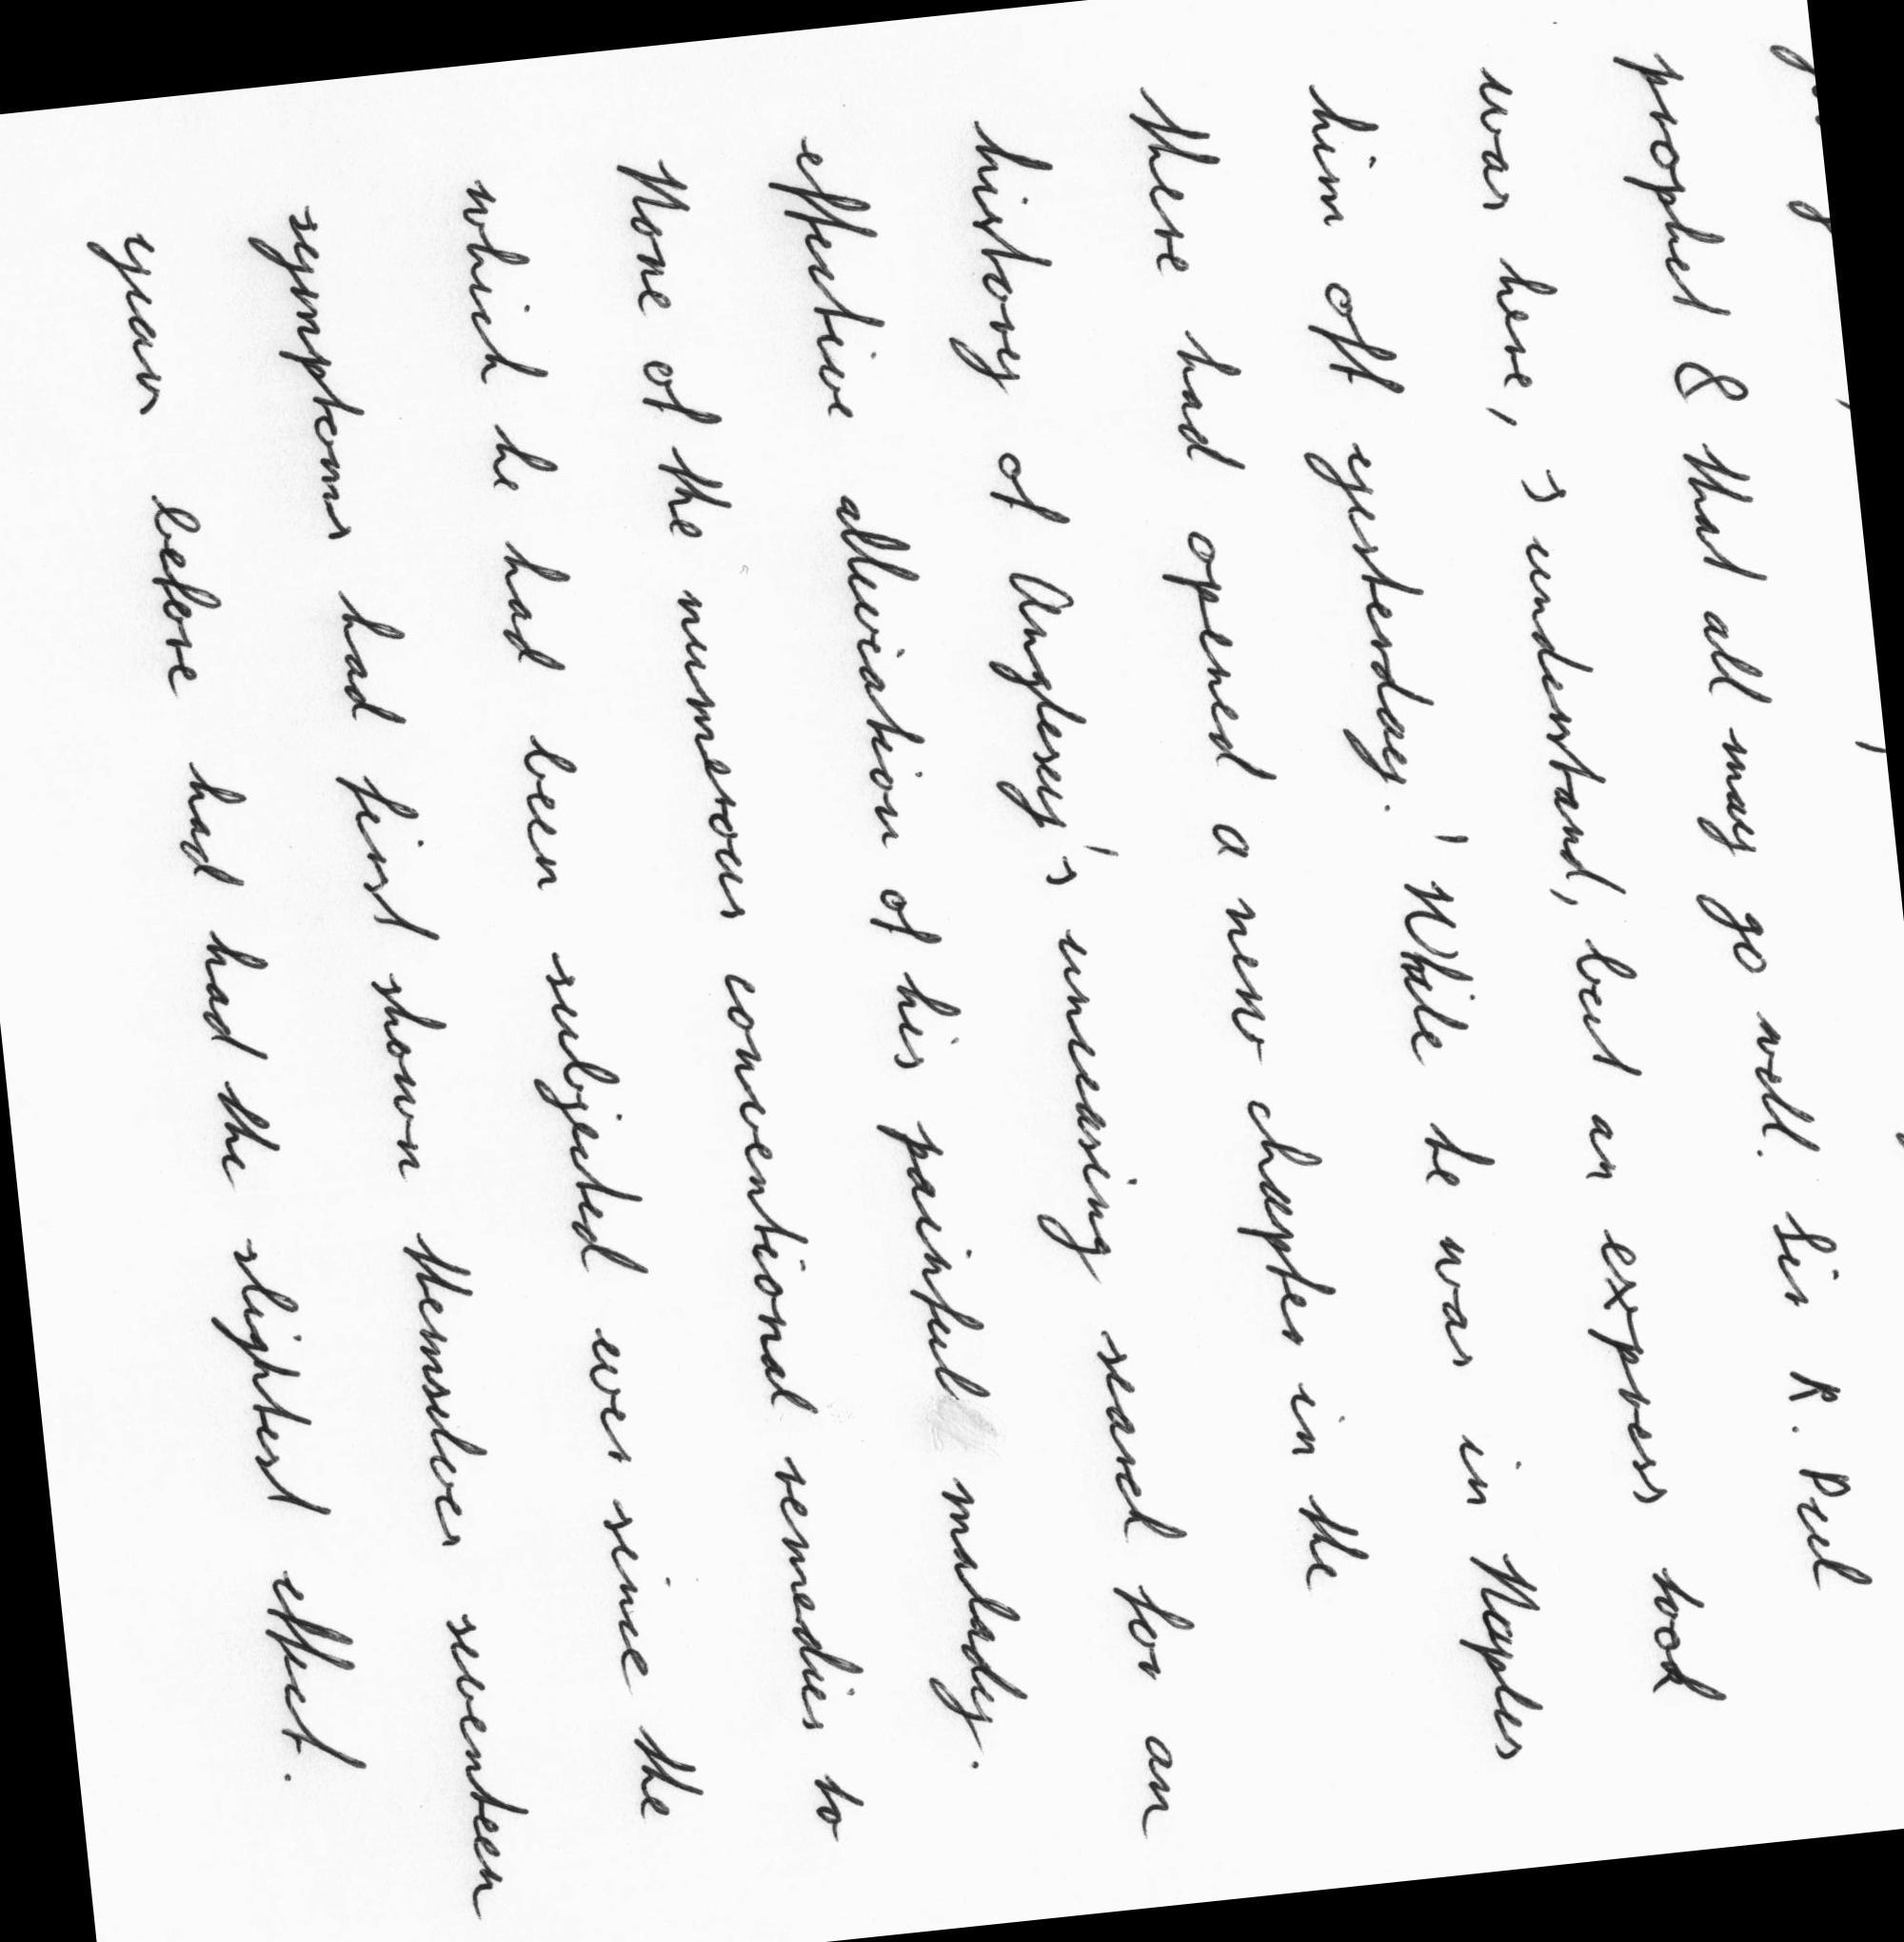 prophet & that all may go well. Sir R. Peel
was here, I understand, but an express took
him off yesterday.' While he was in Naples
there had opened a new chapter in the
history of Anglesey's unceasing search for an
effective alleviation of his painful malady.
None of the numerous conventional remedies to
which he had been subjected ever since the
symptoms had first shown themselves seventeen
years before had had the slightest effect.